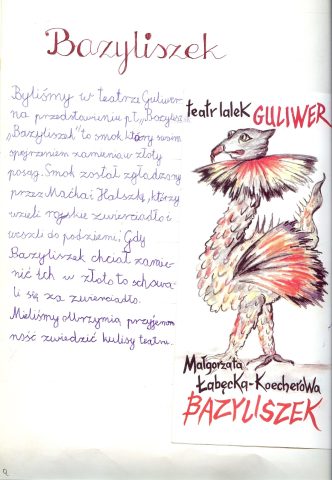 Bazyliszek
Byliśmy w teatrze Guliwer
na przedstawieniu pt. „Bazyliszek
„Bazyliszek" to smok który swoim
spojrzeniem zamienia w złoty
posąg. Smok został zgładzony
przez Maćka i Halszkę, którzy
wzięli wielkie zwierciadło i
weszli do podziemi; Gdy
Bazyliszek chciał zamie-
nić ich w złoto to schowa-
li się za zwierciadło.
Mieliśmy olbrzymia przyjemn
ność zwiedzić kulisy teatru.
teatr lalek GULIWER
Małgorzata
Łabęcka-Koecherowa
BAZYLISZEK